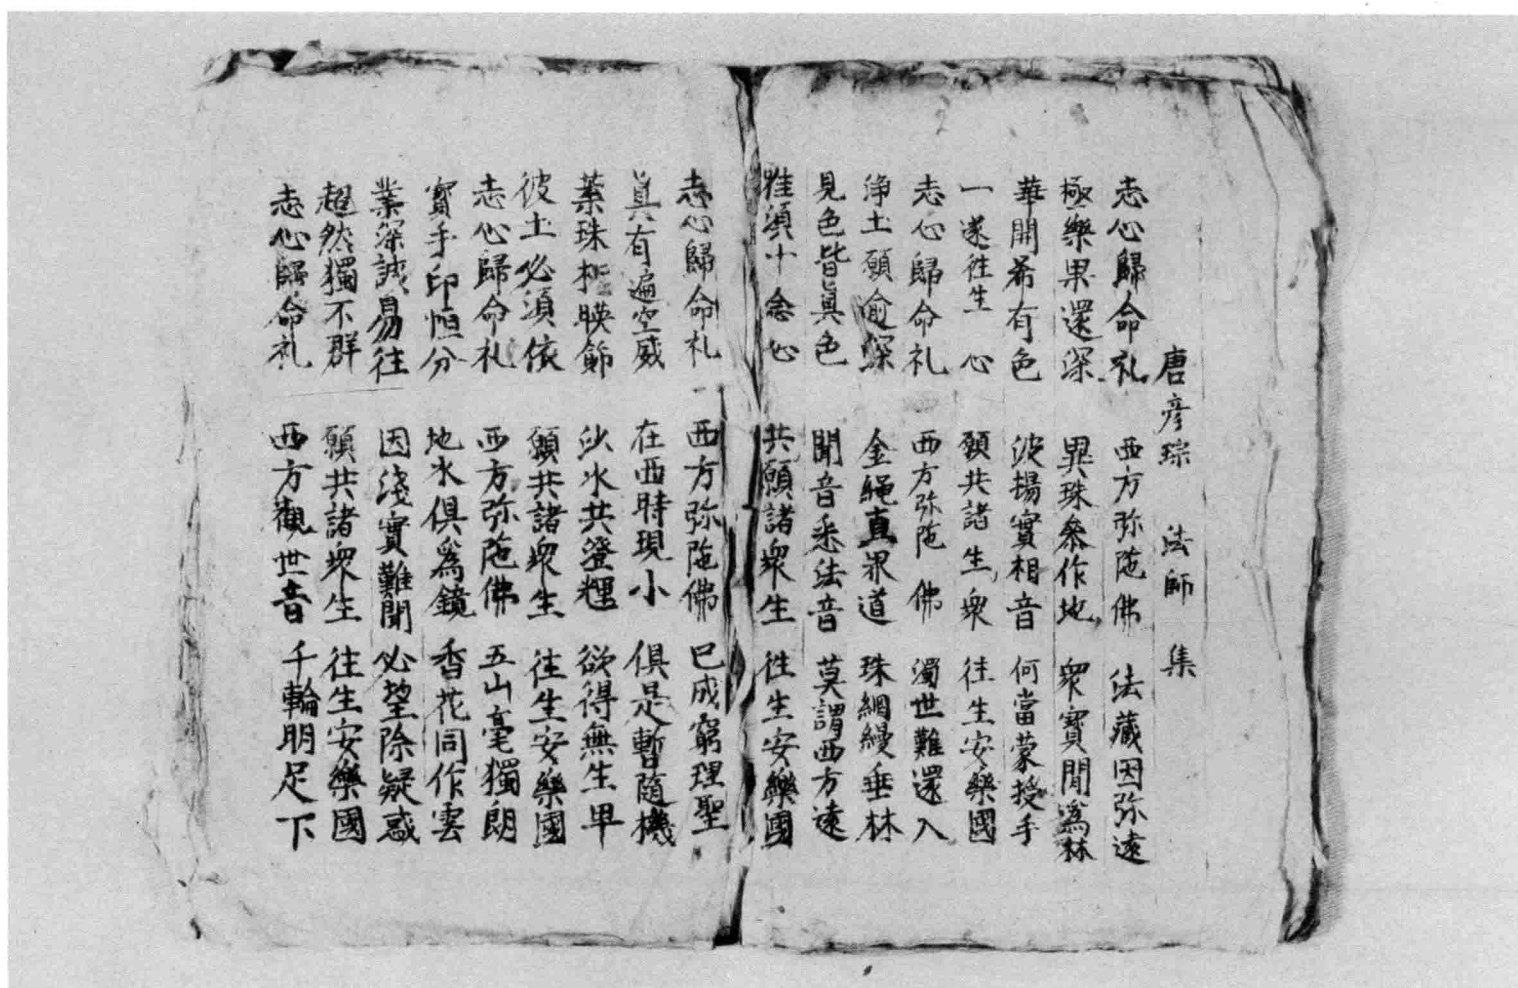 唐彦琮 法師 集
志心歸命礼 西方弥陁佛 法藏因弥遠
極樂果還深 異珠叅作地 衆寳間爲林
華開希有色 波揚實相音 何當蒙授手
一遂往生心 願共諸生衆 往生安樂國
志心歸命礼 西方弥陁佛 濁世難還入
淨土願逾深 金繩直界道 珠網縵垂林
見色皆眞色 聞音悉法音 莫謂西方遠
唯須十念心 共願諸衆生 徃生安樂國
志心歸命礼 西方弥陁佛 已成窮理聖
眞有遍空威 在西時現小 俱是暫隨機
葉珠相暎飾 沙水共澄輝 欲得無生早
彼土必須依 願共諸衆生 往生安樂國
志心歸命礼 西方弥陁佛 五山毫獨朗
寳手印恒分 地水俱爲鏡 香花同作雲
業深誠易往 因淺實難聞 必望除疑惑
超然獨不群 願共諸衆生 往生安樂國
志心歸命礼 西方觀世音 千輪明足下